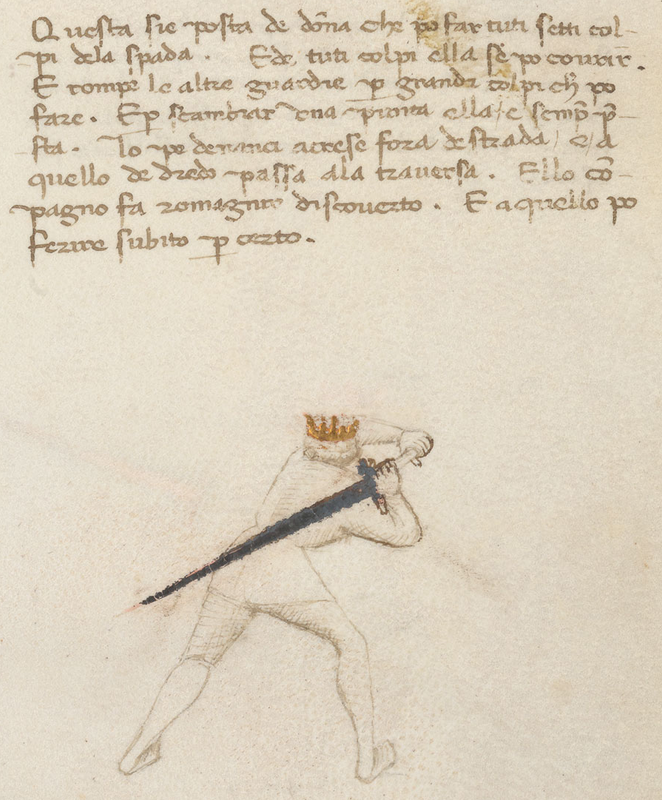 Questa sie posta de dõna che po far tuti setti col-
pi dela spada. E de tuti colpi ella se po courir.
E rompe le altre guardie p grandi colpi ch po
fare. E p scambiar una punta ella e semp p-
sta. Lo pe denanci acrese fora de strada, e a
quello de dredo passa ala traversa. E llo cõ-
pagno fa romagnir discoverto. E a quello po
ferire subito p certo.